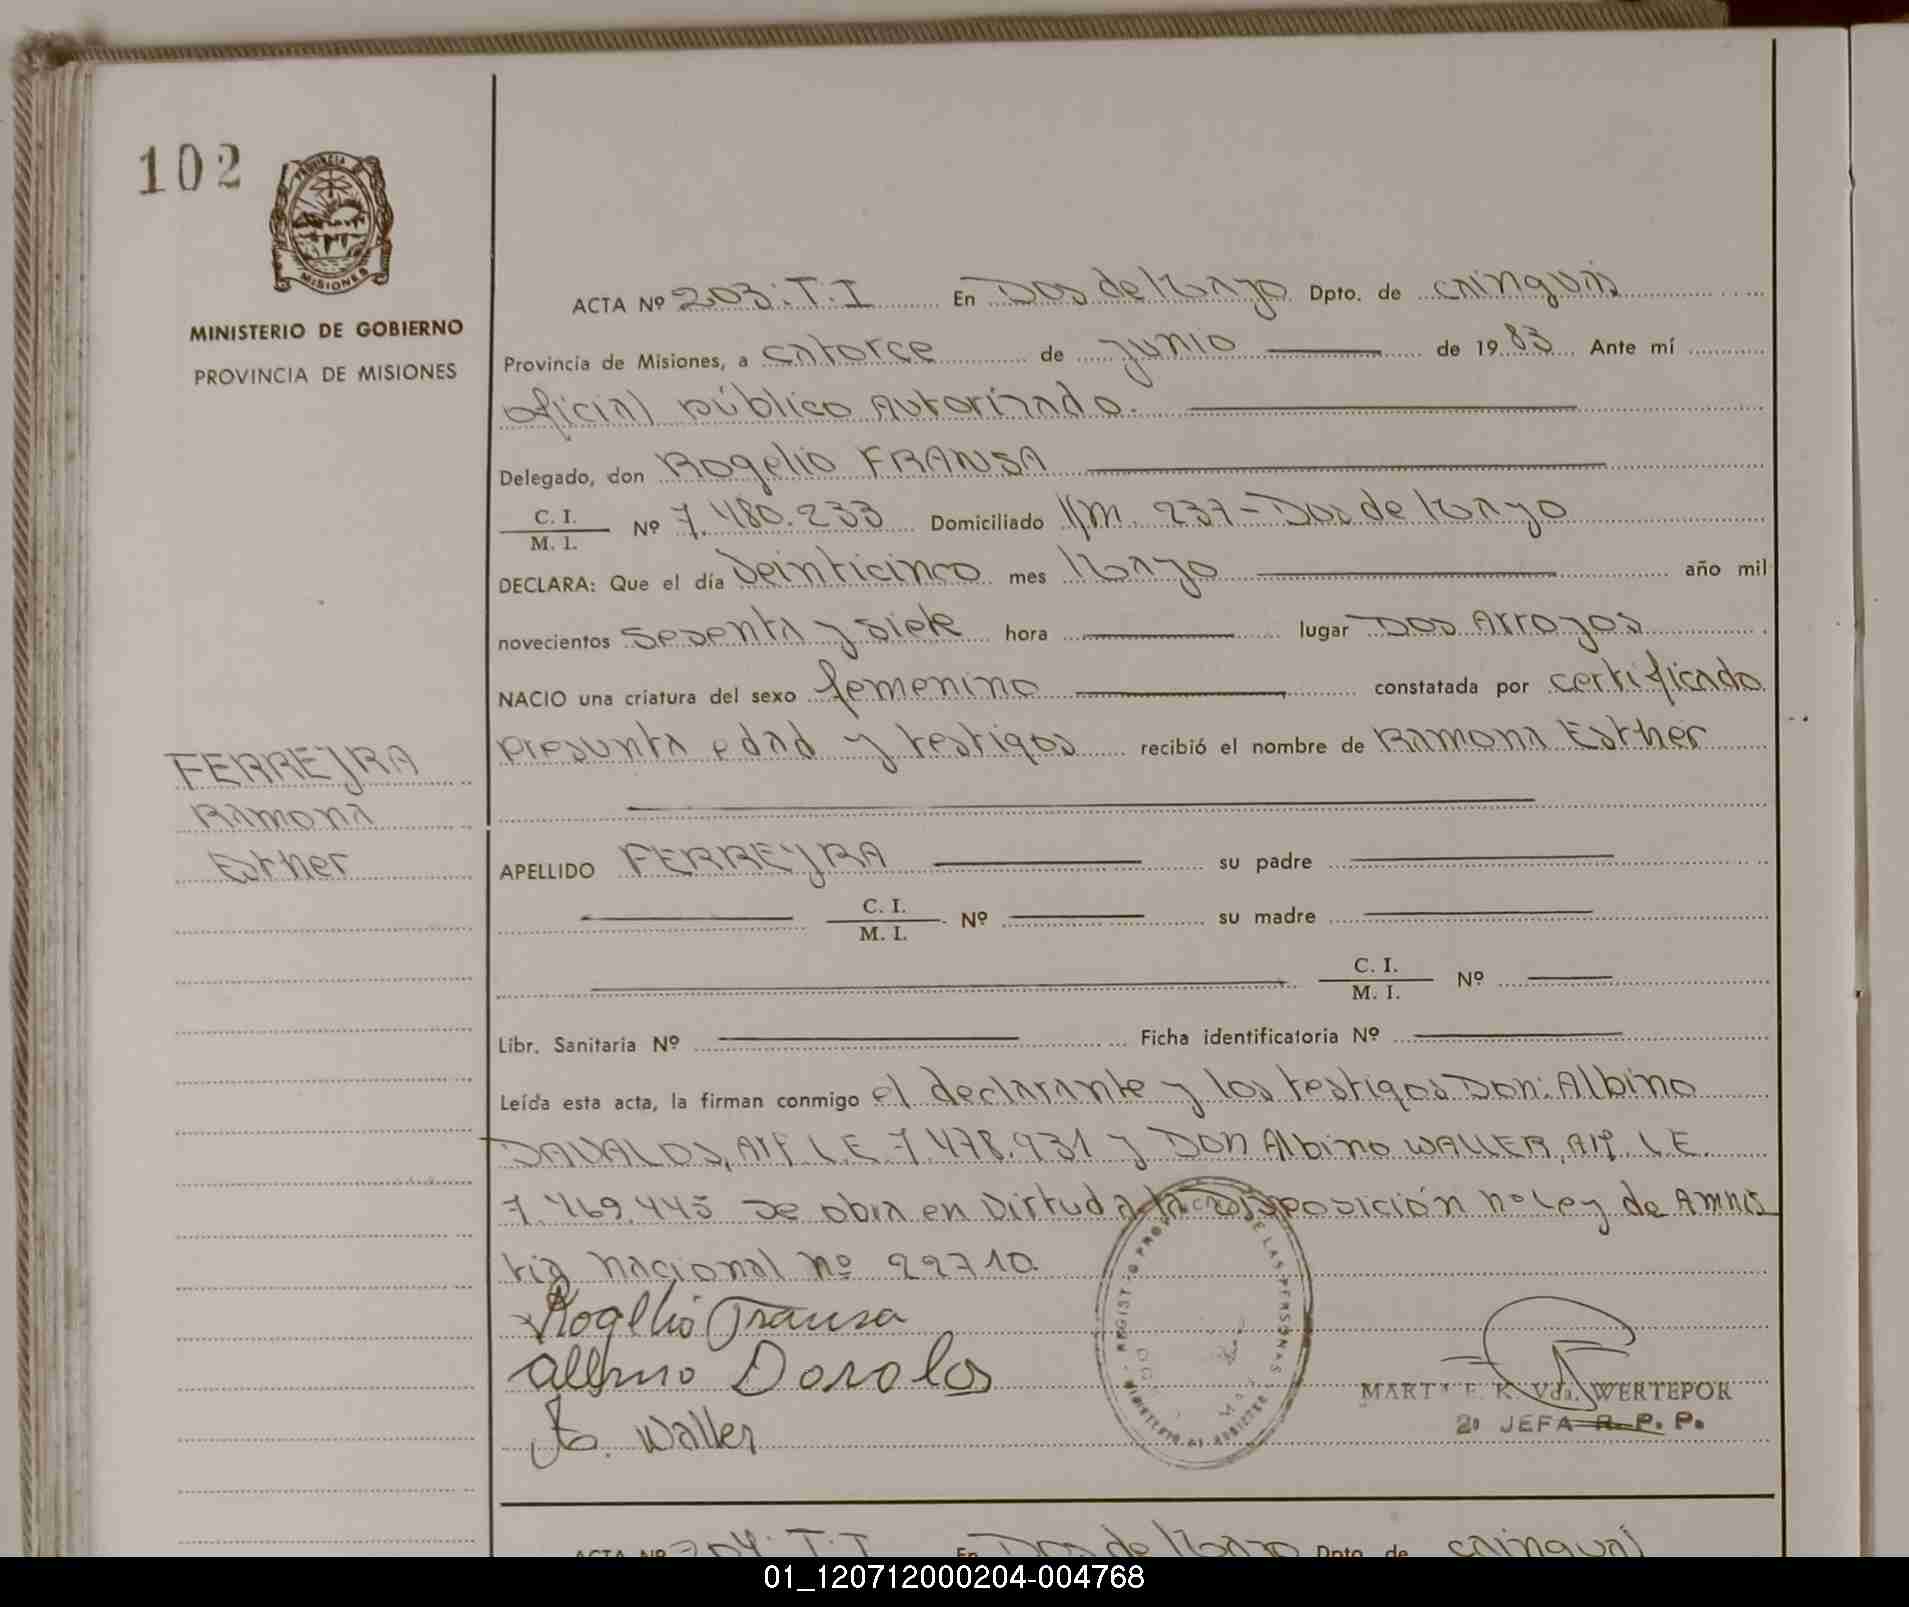 102
PROVINCIA DE
MISIONES
MINISTERIO DE GOBIERNO
PROVINCIA DE MISIONES
ACTA Nº 203. T. I En Dos de Mayo Dpto. de Cainguás
Provincia de Misiones, a catorce de junio de 1983 Ante mí
oficial público autorizado.
Delegado, don Rogelio FRANSA
C. I.
M. I. Nº 7.480.233 Domiciliado Km. 237 - Dos de Mayo
DECLARA: Que el día veinticinco mes Mayo año mil
novecientos sesenta y siete hora lugar Dos Arroyos
NACIO una criatura del sexo femenino constatada por certificado
presunta edad y testigos recibió el nombre de Ramona Esther
FERREYRA
Ramona
Esther
APELLIDO FERREYRA su padre
C. I.
M. I. Nº su madre
C. I.
M. I. Nº
Libr. Sanitaria Nº Ficha identificatoria Nº
Leída esta acta, la firman conmigo el declarante y los testigos Don: Albino
DAVALOS, Arg. L.E. 7.478.931 y Don Albino WALLER, Arg. L.E.
7.469.445 Se obra en virtud a la disposición nº Ley de Amnis
tia nacional nº 22710.
Rogelio Fransa
Albino Dovolos
A. Waller
MARTA E. K. Vda. WERTEPOR
2ª JEFA R. P. P.
ACTA Nº 204. T. I En Dos de Mayo Dpto. de Cainguás
01_120712000204-004768